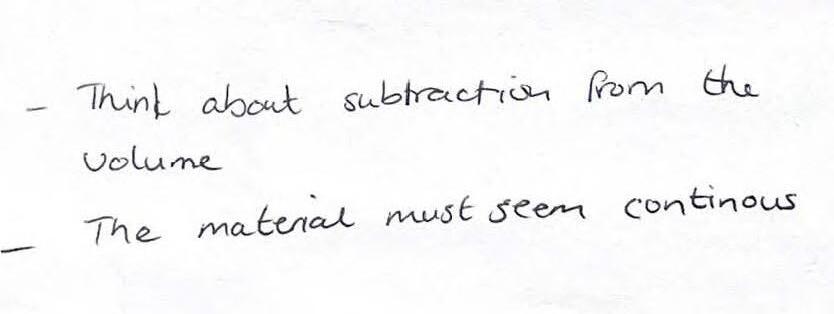 - Think about subtraction from the
volume
- The material must seem continous